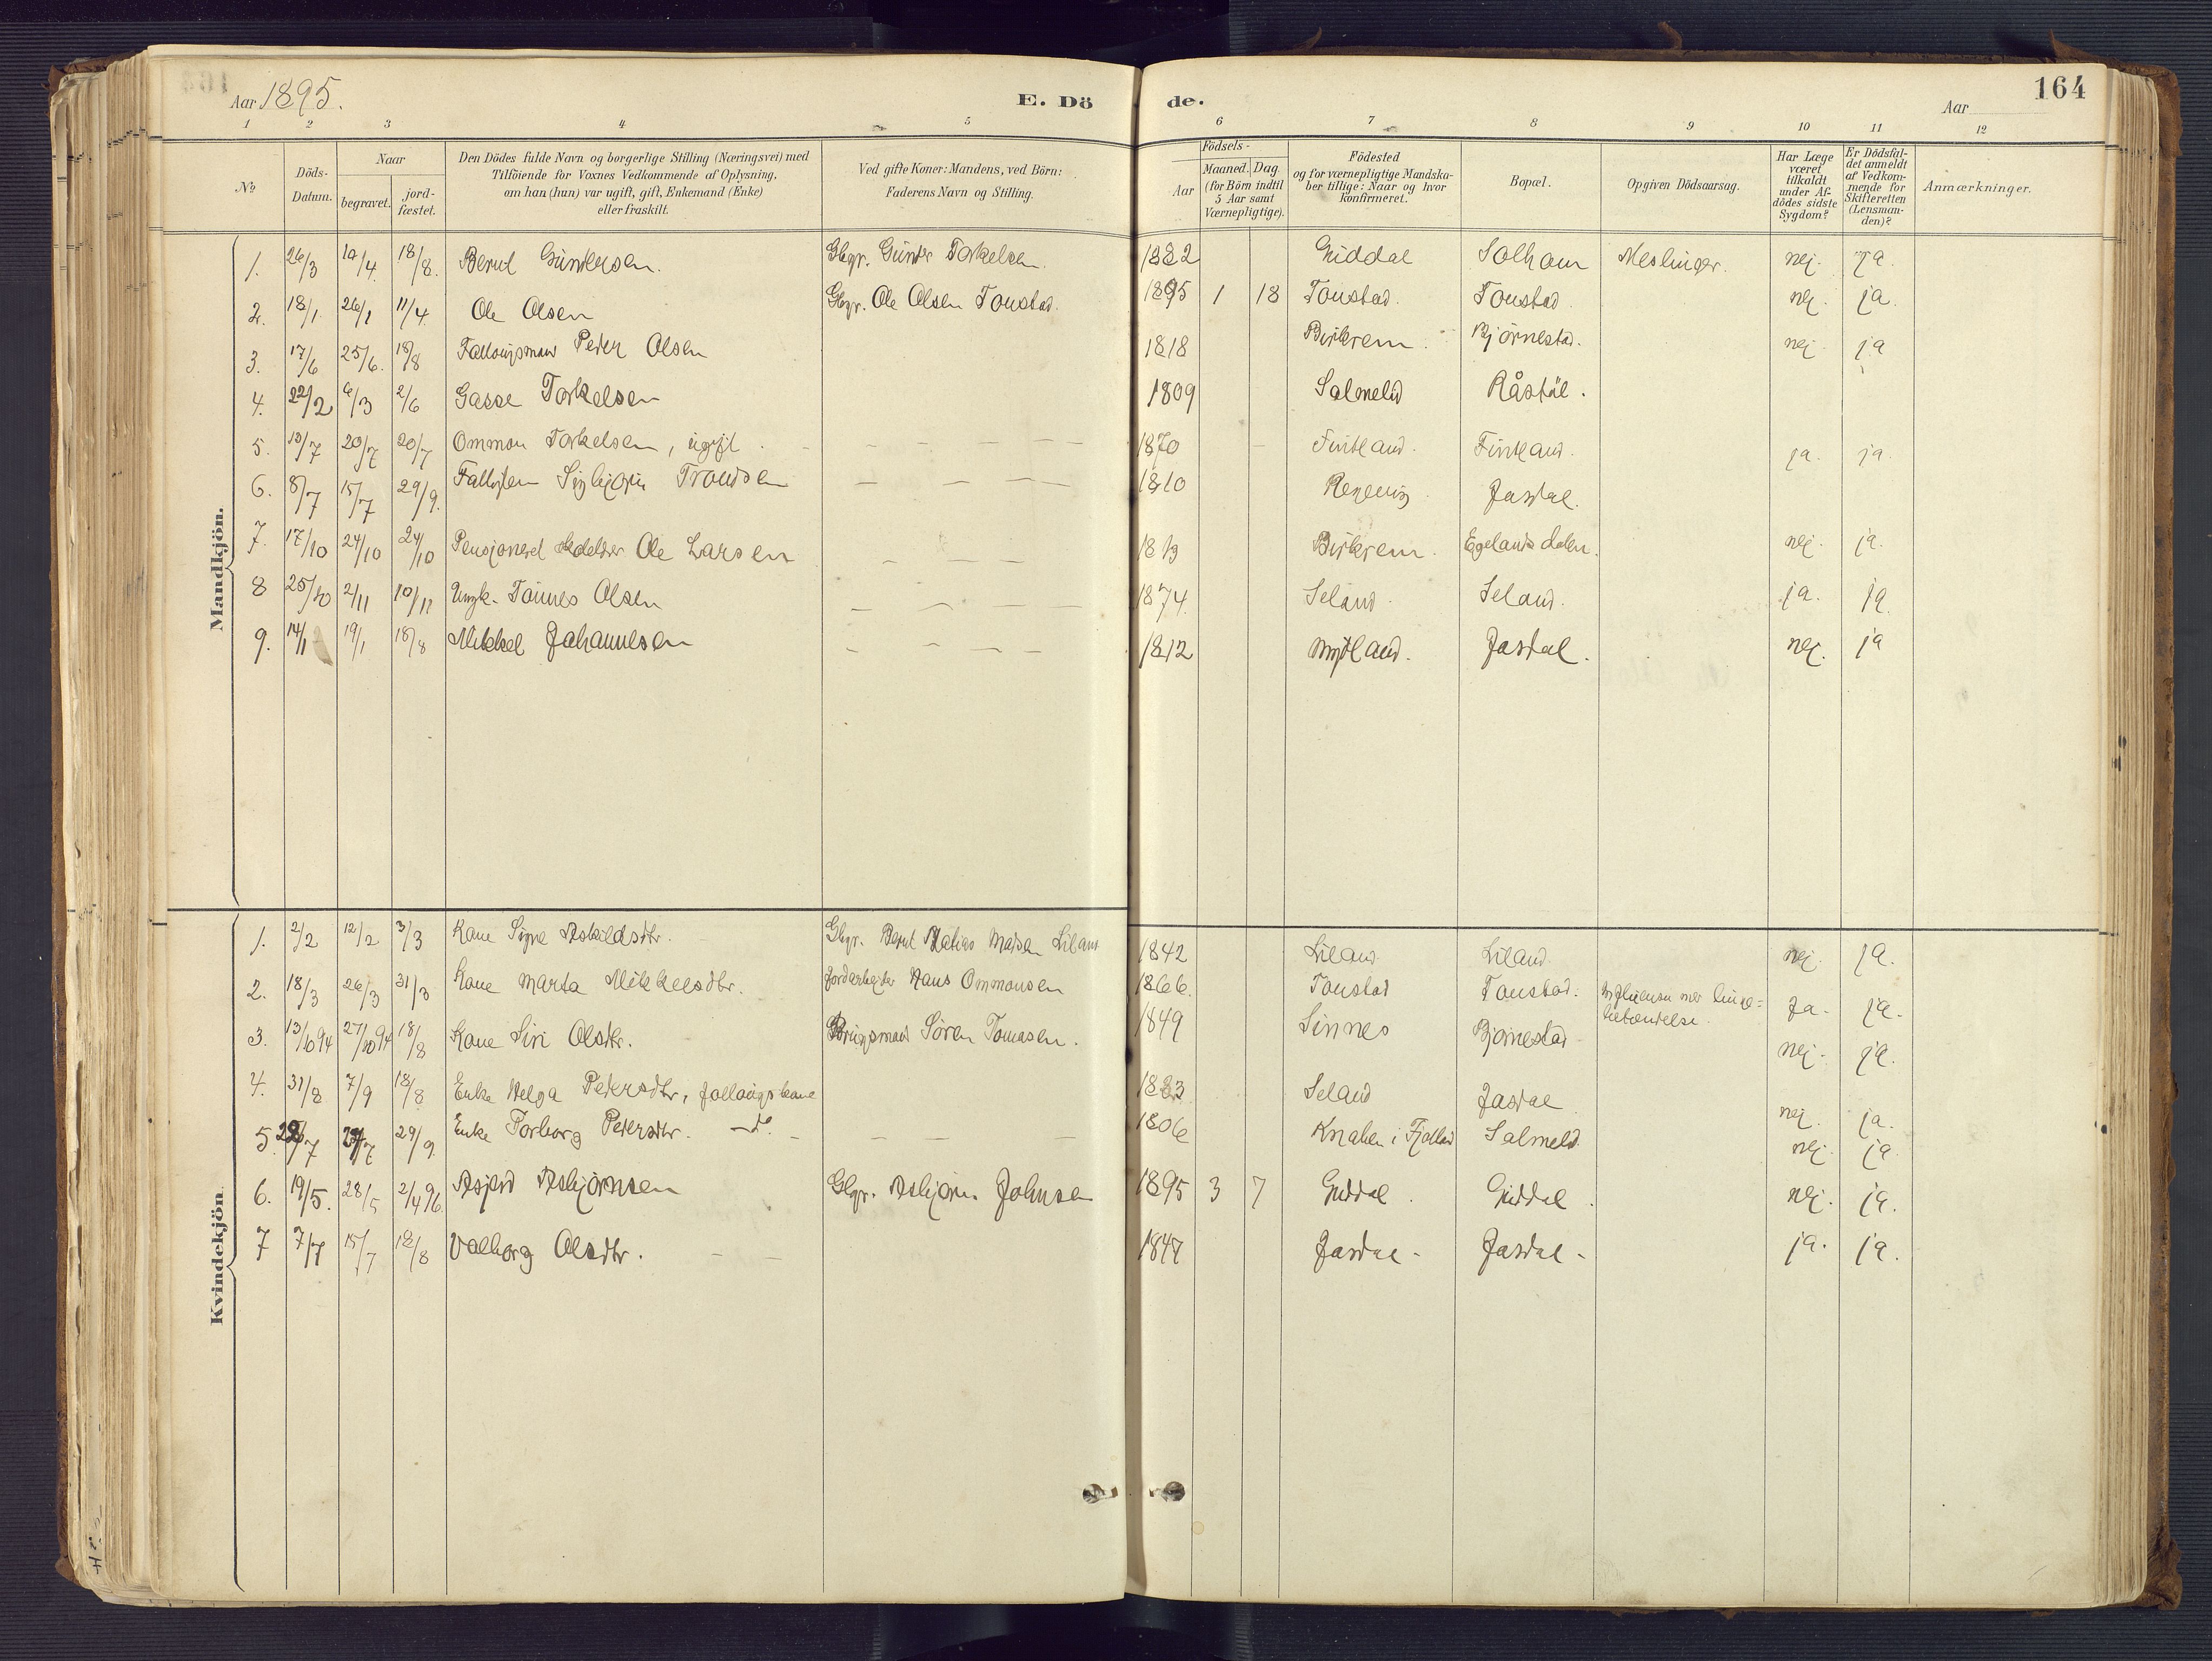 Aar 1895.
E. Dö
de.
164
Aar
1 2 3 4 5 6 7 8 9 10 11 12
No
Döds-Datum.
Naar
begravet.
jord-fæstet.
Den Dödes fulde Navn og borgerlige Stilling (Næringsvei) med
Tilföiende for Voxnes Vedkommende af Oplysning,
om han (hun) var ugift, gift, Enkemand (Enke)
eller fraskilt.
Ved gifte Koner: Mandens, ved Börn:
Faderens Navn og Stilling.
Födsels-
Aar
Maaned. Dag
(for Börn indtil
5 Aar samt
Værnepligtige).
Födested
og for værnepligtige Mandska-
ber tillige: Naar og hvor
konfirmeret.
Bopæl.
Opgiven Dödsaarsag.
Har Læge
været
tilkaldt
under Af-
dödes sidste
Sygdom?
Er Dödsfal-
det anmeldt
af Vedkom-
mende for
Skifteretten
(Lensman-
den)?
Anmærkninger.
Mandkjön.
1. 26/3 10/4. 18/8. Berul Guntersen. Gbgr. Gunter Torkelsen. 1882 Guddal Solhom Meslinger. nej. ja.
2. 18/1. 26/1 11/4. Ole Olsen Gbgr. Ole Olsen Tonstad. 1895 1 18 Tonstad. Tonstad. nej. ja.
3. 17/6 25/6. 18/8 Peder Olsen 1818 Birkrem. Bjørnestad. nej ja
4. 22/2 6/3 2/6 Gasse Torkelsen 1809 Salmelid Råstøl.
5. 13/7 20/7 20/7 Ommon Torkelsen, ugift. 1870 Fintland. Fintland. ja. ja.
6. 8/7 15/7 29/9. Sigbjørn Trondsen 1810 Josdal.
7. 17/10 24/10 24/10 Pensjoneret Ole Larsen Birkrem. Egelandsdalen. nej. ja.
8 25/10 2/11 10/11 Ungk. Tønnes Olsen 1874. Seland. Seland. ja. ja.
9. 14/1 19/1 18/8 Mikkel Johannesen 1812 Mydland. Josdal. nej. ja
Kvindekjön.
1. 2/2 12/2 3/3 Kone Signe Askildsdtr. Gbgr. Berul Matias Liland 1842 Liland Liland. nej. ja.
2. 18/3 26/3 31/3 Kone Marta Mikkelsdtr. Jordarbeyder Hans Ommonsen 1866. Tonstad Tonstad. Influensa med lunge=
betændelse. Ja. ja.
3. 13/10 94 27/10 94 18/8 Kone Siri Olsdtr. Brugsmand Søren Tomasen. 1849 Sinnes Bjørnestad nej. ja.
4. 31/8 7/9 18/8 Enke Helga Petersdtr, 1883 Seland Josdal nej. ja.
5. 29/9. Enke Torborg Petersdtr. — do. 1806 Knaben i Fjotland Salmeld. nej. ja
6. 19/5. 28/5 2/4 96. Asbjørnsen Gbgr. Asbjørn Johnsen 1895 3 7 Guddal. Guddal. nej. ja.
7 7/7 15/7 18/8 Valborg Olsdtr. 1847 Josdal - Josdal - ja. ja.